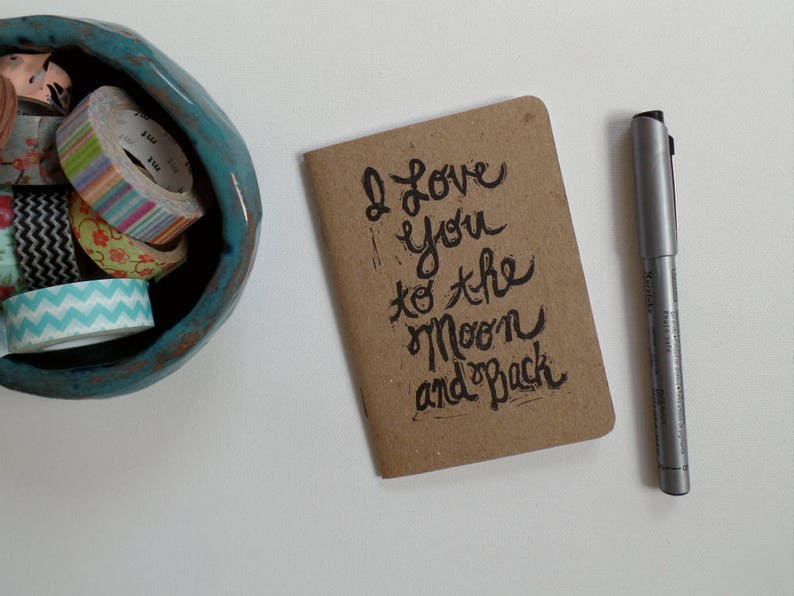 mt
mt
I Love
You
to the
Moon
and Back